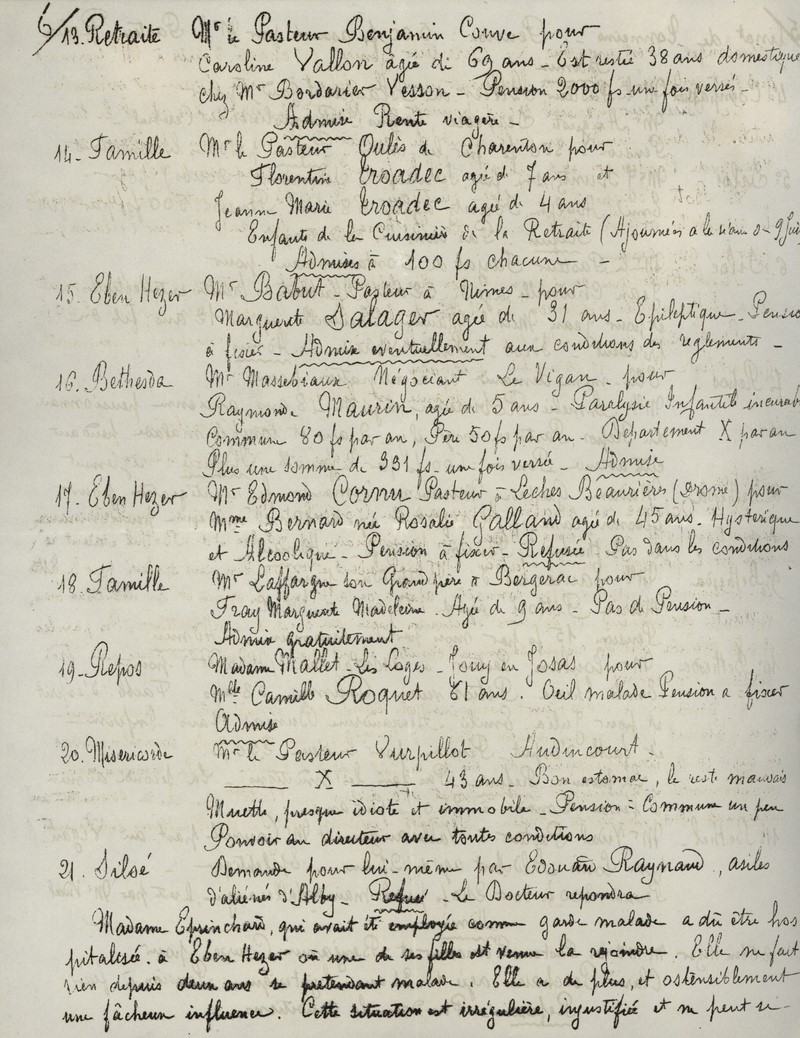 6/
13. Retraite Mr le Pasteur Benjamin Couve pour
Caroline Vallon agée de 69 ans - Est restée 38 ans domestique
chez Mr Bordarier Vesson - Pension 2000 fs une fois versés -
Admise Rente viagère -
14 - Famille Mr le Pasteur Oulès de Charenton pour
Florentine Croadec agée de 7 ans et
Jeanne Marie Croadec agée de 4 ans
Enfants de la Cuisinière de la Retraite (Ajournées a la séance du 9 Juin
Admises à 100 fs chacune -
15. Eben Hezer Mr Babut - Pasteur à Nimes - pour
Marguerite Salager agée de 31 ans - Epileptique - Pension
à fixer - Admise eventuellement aux conditions des reglements -
16. Bethesda Mr Massebiaux Négociant Le Vigan - pour
Raymonde Maurin, agée de 5 ans - Paralysie Infantile incurab
Commune 80 fs par an, Père 50 fs par an - Département X par an
Plus une somme de 331 fs une fois versée - Admise
17. Eben Hezer Mr Edmond Cornu Pasteur à Leches Beaurières (Drome) pour
Mme Bernard née Rosalie Galland agée de 45 ans - Hysterique
et Alcoolique - Pension à fixer - Refusée Pas dans les conditions
18. Famille Mr Laffargue son Grand père à Bergerac pour
Fray Marguerite Madeleine. Agée de 9 ans - Pas de Pension -
Admise gratuitement
19 - Repos Madame Mallet - Les Loges - Jouy en Josas pour
Mlle Camille Roquet 81 ans. Oeil malade Pension a fixer
Admise
20. Misericorde Mr le Pasteur Vurpillot Audincourt -
X 43 ans - Bon estomac, le reste mauvais
Muette, presque idiote et immobile - Pension = Commune un peu
Pouvoir au directeur avec toutes conditions
21. Siloé Demande pour lui-même par Edouard Raynaud, asiles
d'aliénés d'Alby - Refusé - Le Docteur repondra
Madame Eprinchard, qui avait été employée comme garde malade a dû être hos
pitalisée à Eben Hezer où une de ses filles est venue la rejoindre. Elle ne fait
rien depuis deux ans se prétendant malade. Elle a de plus, et ostensiblement
une fâcheuse influence. Cette situation est irrégulière, injustifiée et ne peut se -